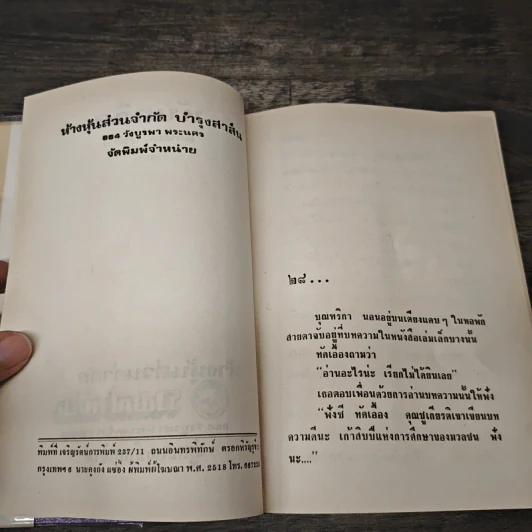 ห้างหุ้นส่วนจำกัด บำรุงสาส์น
๑๑๔ วังบูรพา พระนคร
จัดพิมพ์จำหน่าย
พิมพ์ที่ เจริญรัตน์การพิมพ์ 237/11 ถนนอินทรพิทักษ์ ตรอกหิรัญรูจี
กรุงเทพฯ นายคุงกัง แซ่อึ้ง ผู้พิมพ์ผู้โฆษณา พ.ศ. 2518 โทร.
๒๘...
บุณฑริกา นอนอยู่บนเตียงแคบ ๆ ในหอพัก
สายตาจับอยู่ที่บทความในหนังสือเล่มเล็กบางนั้น
ทัดเอื้องถามว่า
“อ่านอะไรน่ะ เรียกไม่ได้ยินเลย”
เธอตอบเพื่อนด้วยการอ่านบทความนั้นให้ฟัง
“ฟังซี ทัดเอื้อง คุณชูเกียรติเขาเขียนบท
ความดีนะ เก้าสิบปีแห่งการศึกษาของมวลชน ฟัง
นะ....”